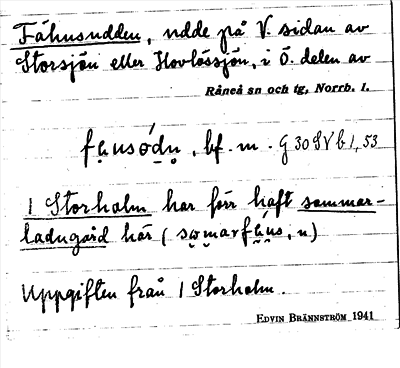 Fähusudden, udde på V. sidan av
Storsjön eller Hovlössjön, i Ö. delen av
Råneå sn och tg, Norrb. l.
fḁusódṇ, bf. m. G 30 SV b 1, 53
1 Storholm har förr haft sommar-
ladugård här (so̤marfä́us, n)
Uppgiften från 1 Storholm.
EDVIN BRÄNNSTRÖM 1941